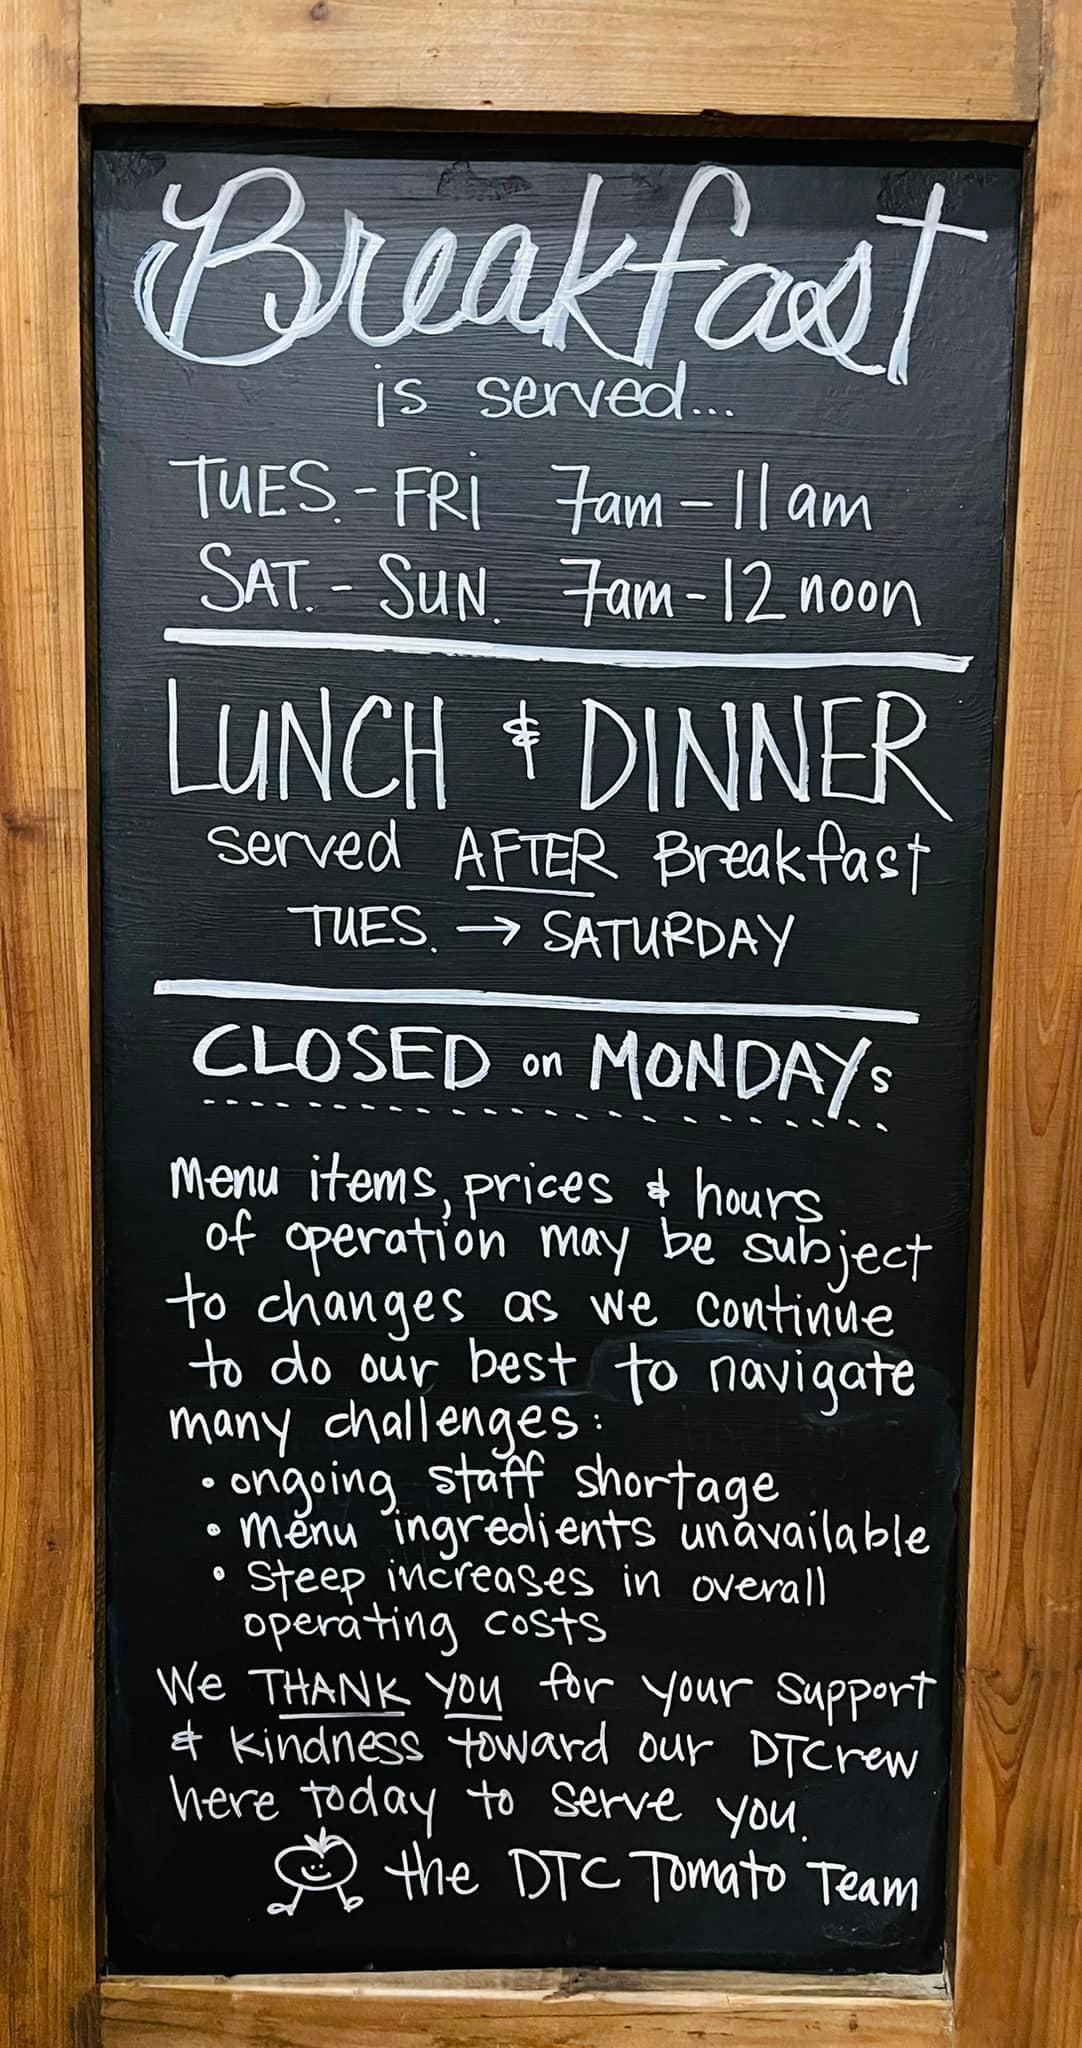 Breakfast
is served...
TUES. - FRI 7am - 11am
SAT. - SUN. 7am - 12 noon
LUNCH & DINNER
served AFTER Breakfast
TUES. → SATURDAY
CLOSED on MONDAYs
Menu items, prices & hours
of operation may be subject
to changes as we continue
to do our best to navigate
many challenges:
• ongoing staff shortage
• menu ingredients unavailable
• steep increases in overall
operating costs
We THANK YOU for your support
& kindness toward our DTCrew
here today to serve you.
the DTC Tomato Team